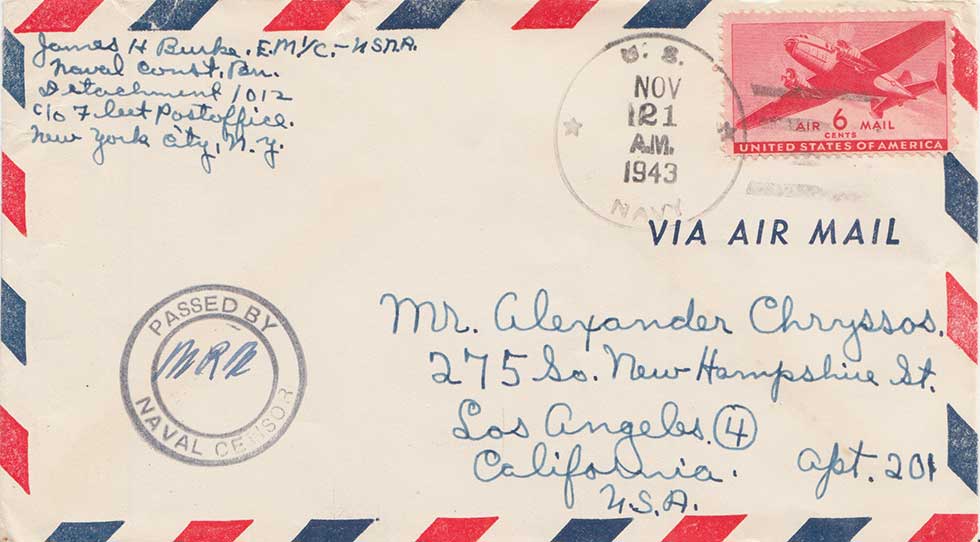 James H Burke. E.M1/C. - USNR.
Naval Const. Bn.
Detachment 1012
c/o Fleet Postoffice.
New York City, N.Y.
U. S.
NOV
121
A.M.
1943
NAVY
AIR 6 MAIL
CENTS
UNITED STATES OF AMERICA
VIA AIR MAIL
Mr. Alexander Chryssos.
275 So. New Hampshire St.
Los Angeles. 4
California. Apt. 201
U.S.A.
PASSED BY
NAVAL CENSOR